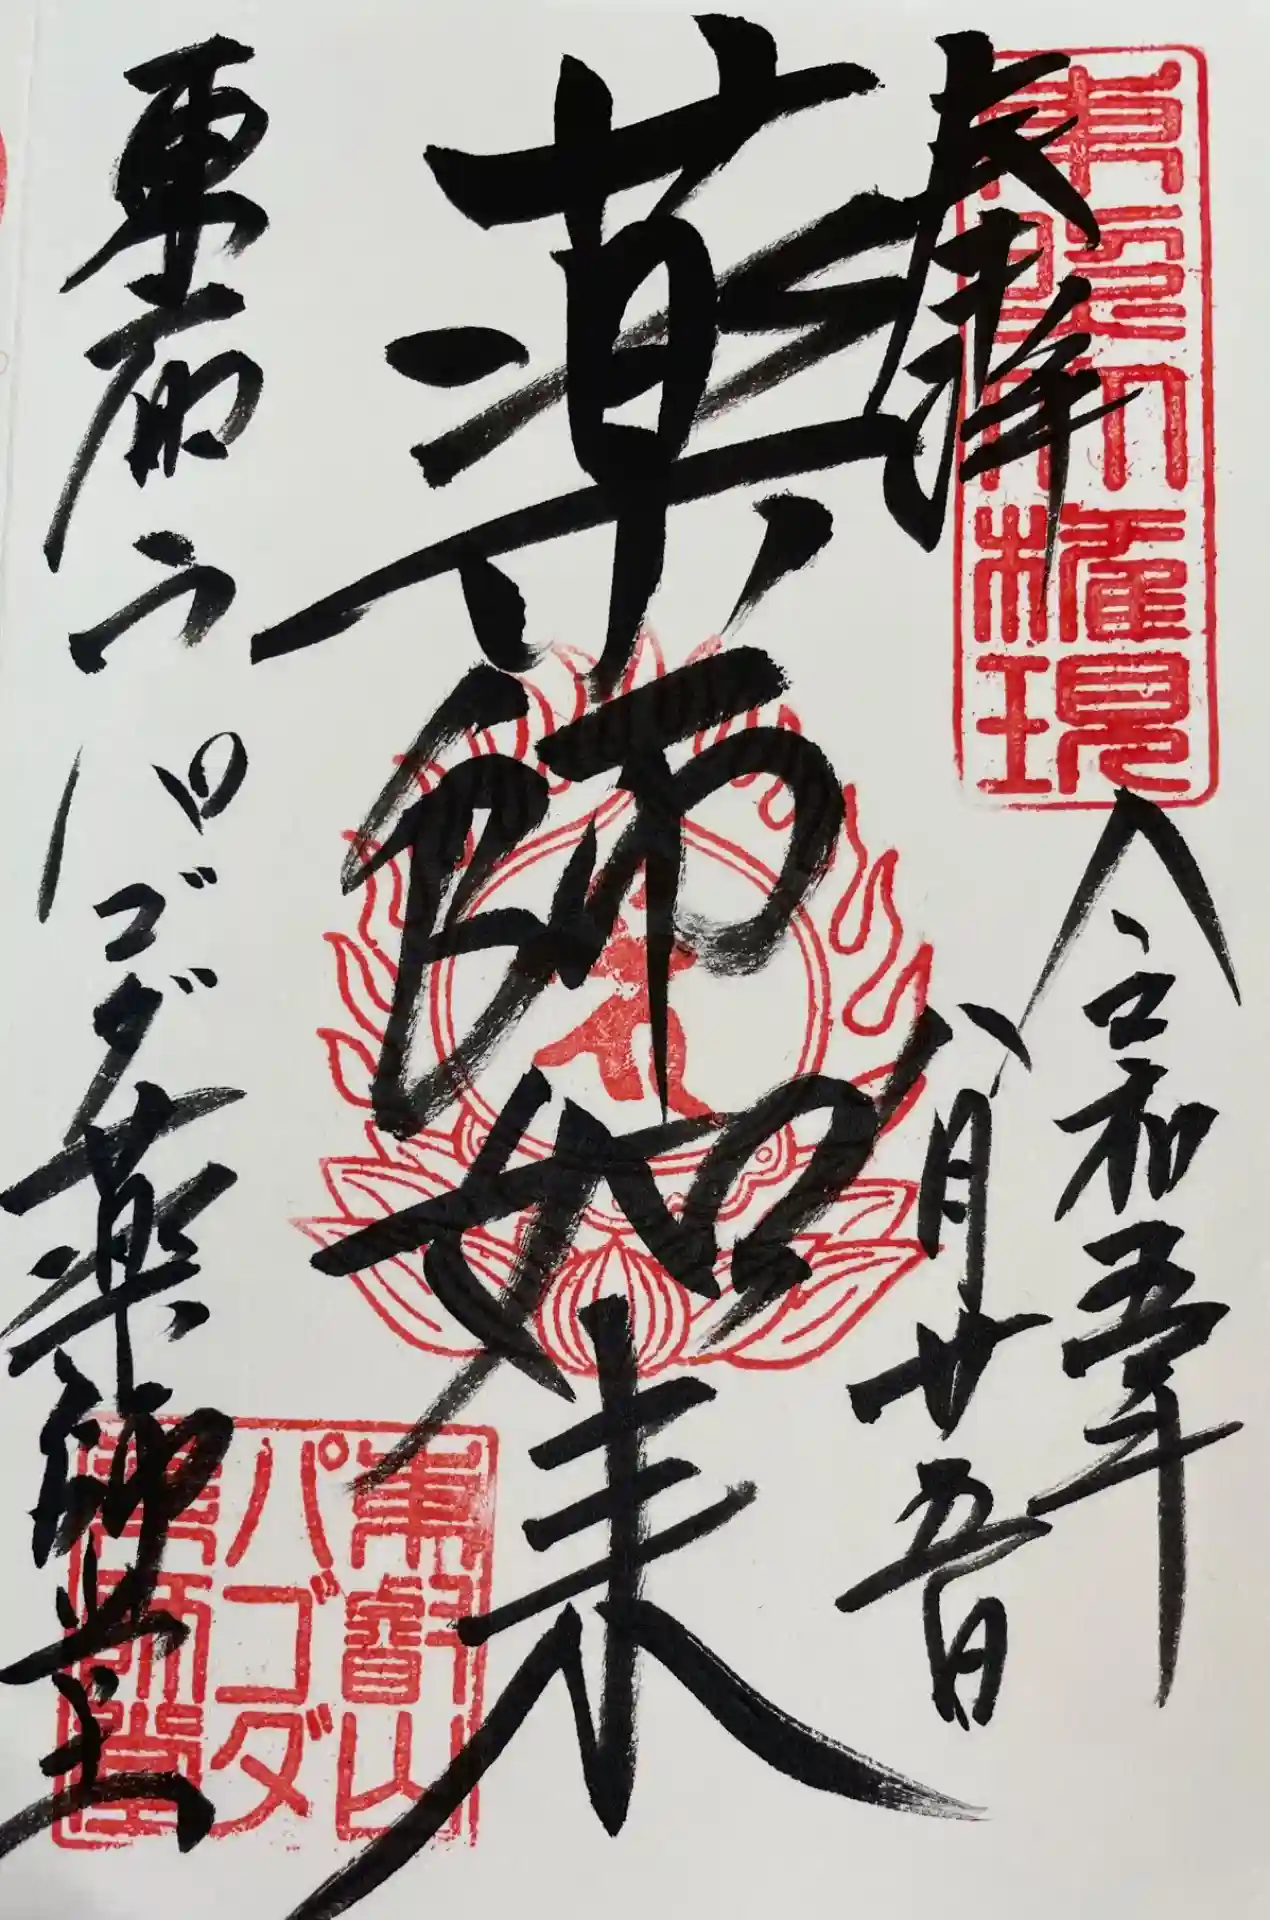 奉拝
令和五年
八月廿五日
薬師如来
東都
パゴダ薬師堂
東照大権現
東叡山
パゴダ
薬師堂